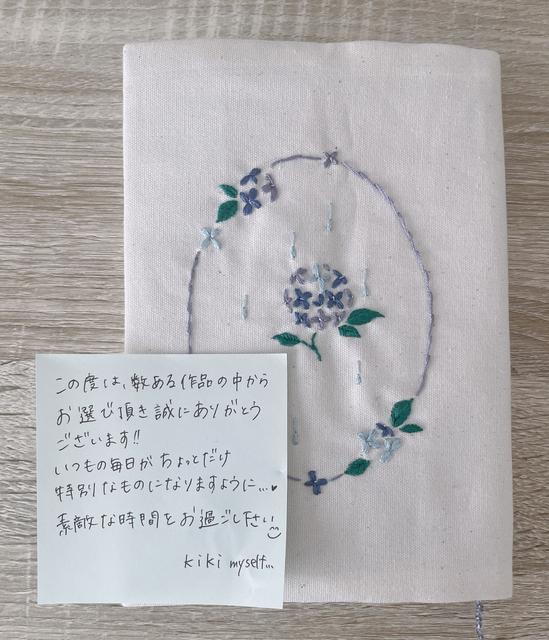 この度は、数ある作品の中から
お選び頂き誠にありがとう
ございます!!
いつもの毎日がちょっとだけ
特別なものになりますように...♥
素敵な時間をお過ごし下さい☺
kiki myself...